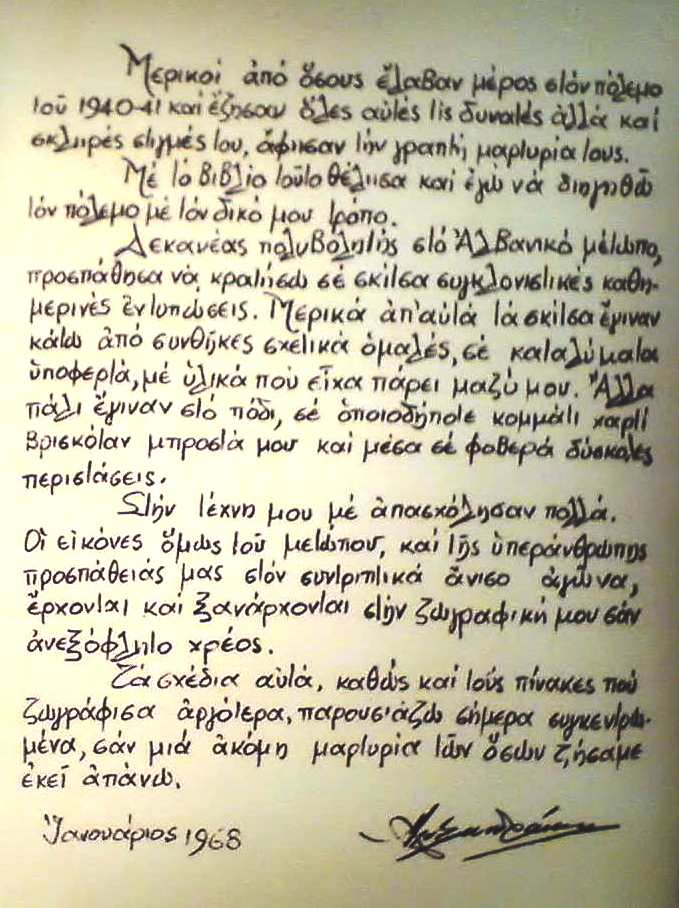 Μερικοί ἀπό ὅσους ἔλαβαν μέρος στόν πόλεμο
τοῦ 1940-41 καί ἔζησαν ὅλες αὐτές τίς δυνατές ἀλλά καί
σκληρές στιγμές του, ἄφησαν τήν γραπτή μαρτυρία τους.
Μέ τό βιβλίο τοῦτο θέλησα καί ἐγώ νά διηγηθῶ
τόν πόλεμο μέ τόν δικό μου τρόπο.
Δεκανέας πολυβολητής στό Ἀλβανικό μέτωπο,
προσπάθησα νά κρατήσω σέ σκίτσα συγκλονιστικές καθη-
μερινές ἐντυπώσεις. Μερικά ἀπ' αὐτά τά σκίτσα ἔγιναν
κάτω ἀπό συνθῆκες σχετικά ὁμαλές, σέ καταλύματα
ὑποφερτά, μέ ὑλικά πού εἶχα πάρει μαζύ μου. Ἄλλα
πάλι ἔγιναν στό πόδι, σέ ὁποιοδήποτε κομμάτι χαρτί
βρισκόταν μπροστά μου καί μέσα σέ φοβερά δύσκολες
περιστάσεις.
Στήν τέχνη μου μέ ἀπασχόλησαν πολλά.
Οἱ εἰκόνες ὅμως τοῦ μετώπου, καί τῆς ὑπεράνθρωπης
προσπάθειάς μας στόν συντριπτικά ἄνισο ἀγῶνα,
ἔρχονται καί ξανάρχονται στήν ζωγραφική μου σάν
ἀνεξόφλητο χρέος.
Τά σχέδια αὐτά, καθώς καί τούς πίνακες πού
ζωγράφισα ἀργότερα, παρουσιάζω σήμερα συγκεντρω-
μένα, σάν μιά ἀκόμη μαρτυρία τῶν ὅσων ζήσαμε
ἐκεῖ ἀπάνω.
Ἰανουάριος 1968